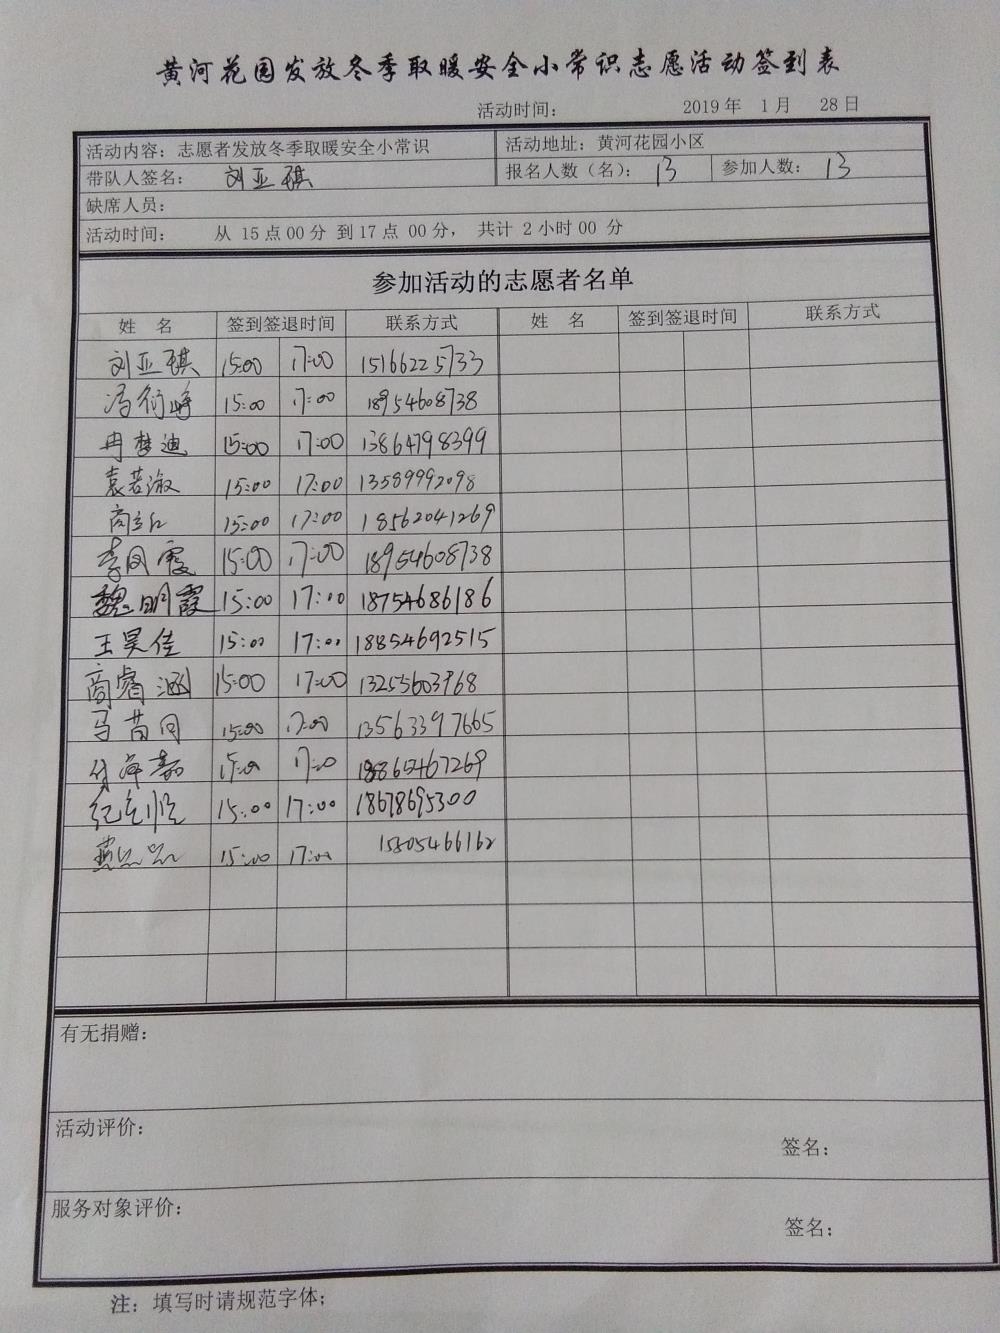 黄河花园发放冬季取暖安全小常识志愿活动签到表
活动时间: 2019年 1月 28日
活动内容: 志愿者发放冬季取暖安全小常识 活动地址: 黄河花园小区
带队人签名: 刘亚琪 报名人数（名）: 13 参加人数: 13
缺席人员:
活动时间: 从 15点00分 到17点 00分, 共计 2小时00 分
参加活动的志愿者名单
姓 名 签到签退时间 联系方式 姓 名 签到签退时间 联系方式
刘亚琪 15:00 17:00 15166225733
冯衍峰 15:00 17:00 18954608738
冉梦迪 15:00 17:00 13864798399
袁若溆 15:00 17:00 13589992098
商立红 15:00 17:00 18562041269
李凤霞 15:00 17:00 18954608738
魏明霞 15:00 17:00 18754686186
王昊佳 15:00 17:00 18854692515
商睿涵 15:00 17:00 13255603968
马苗同 15:00 17:00 13563397665
15:00 17:00 18865467269
15:00 17:00 18678695300
15:00 17:00 15805466162
有无捐赠:
活动评价:
签名:
服务对象评价:
签名:
注: 填写时请规范字体;